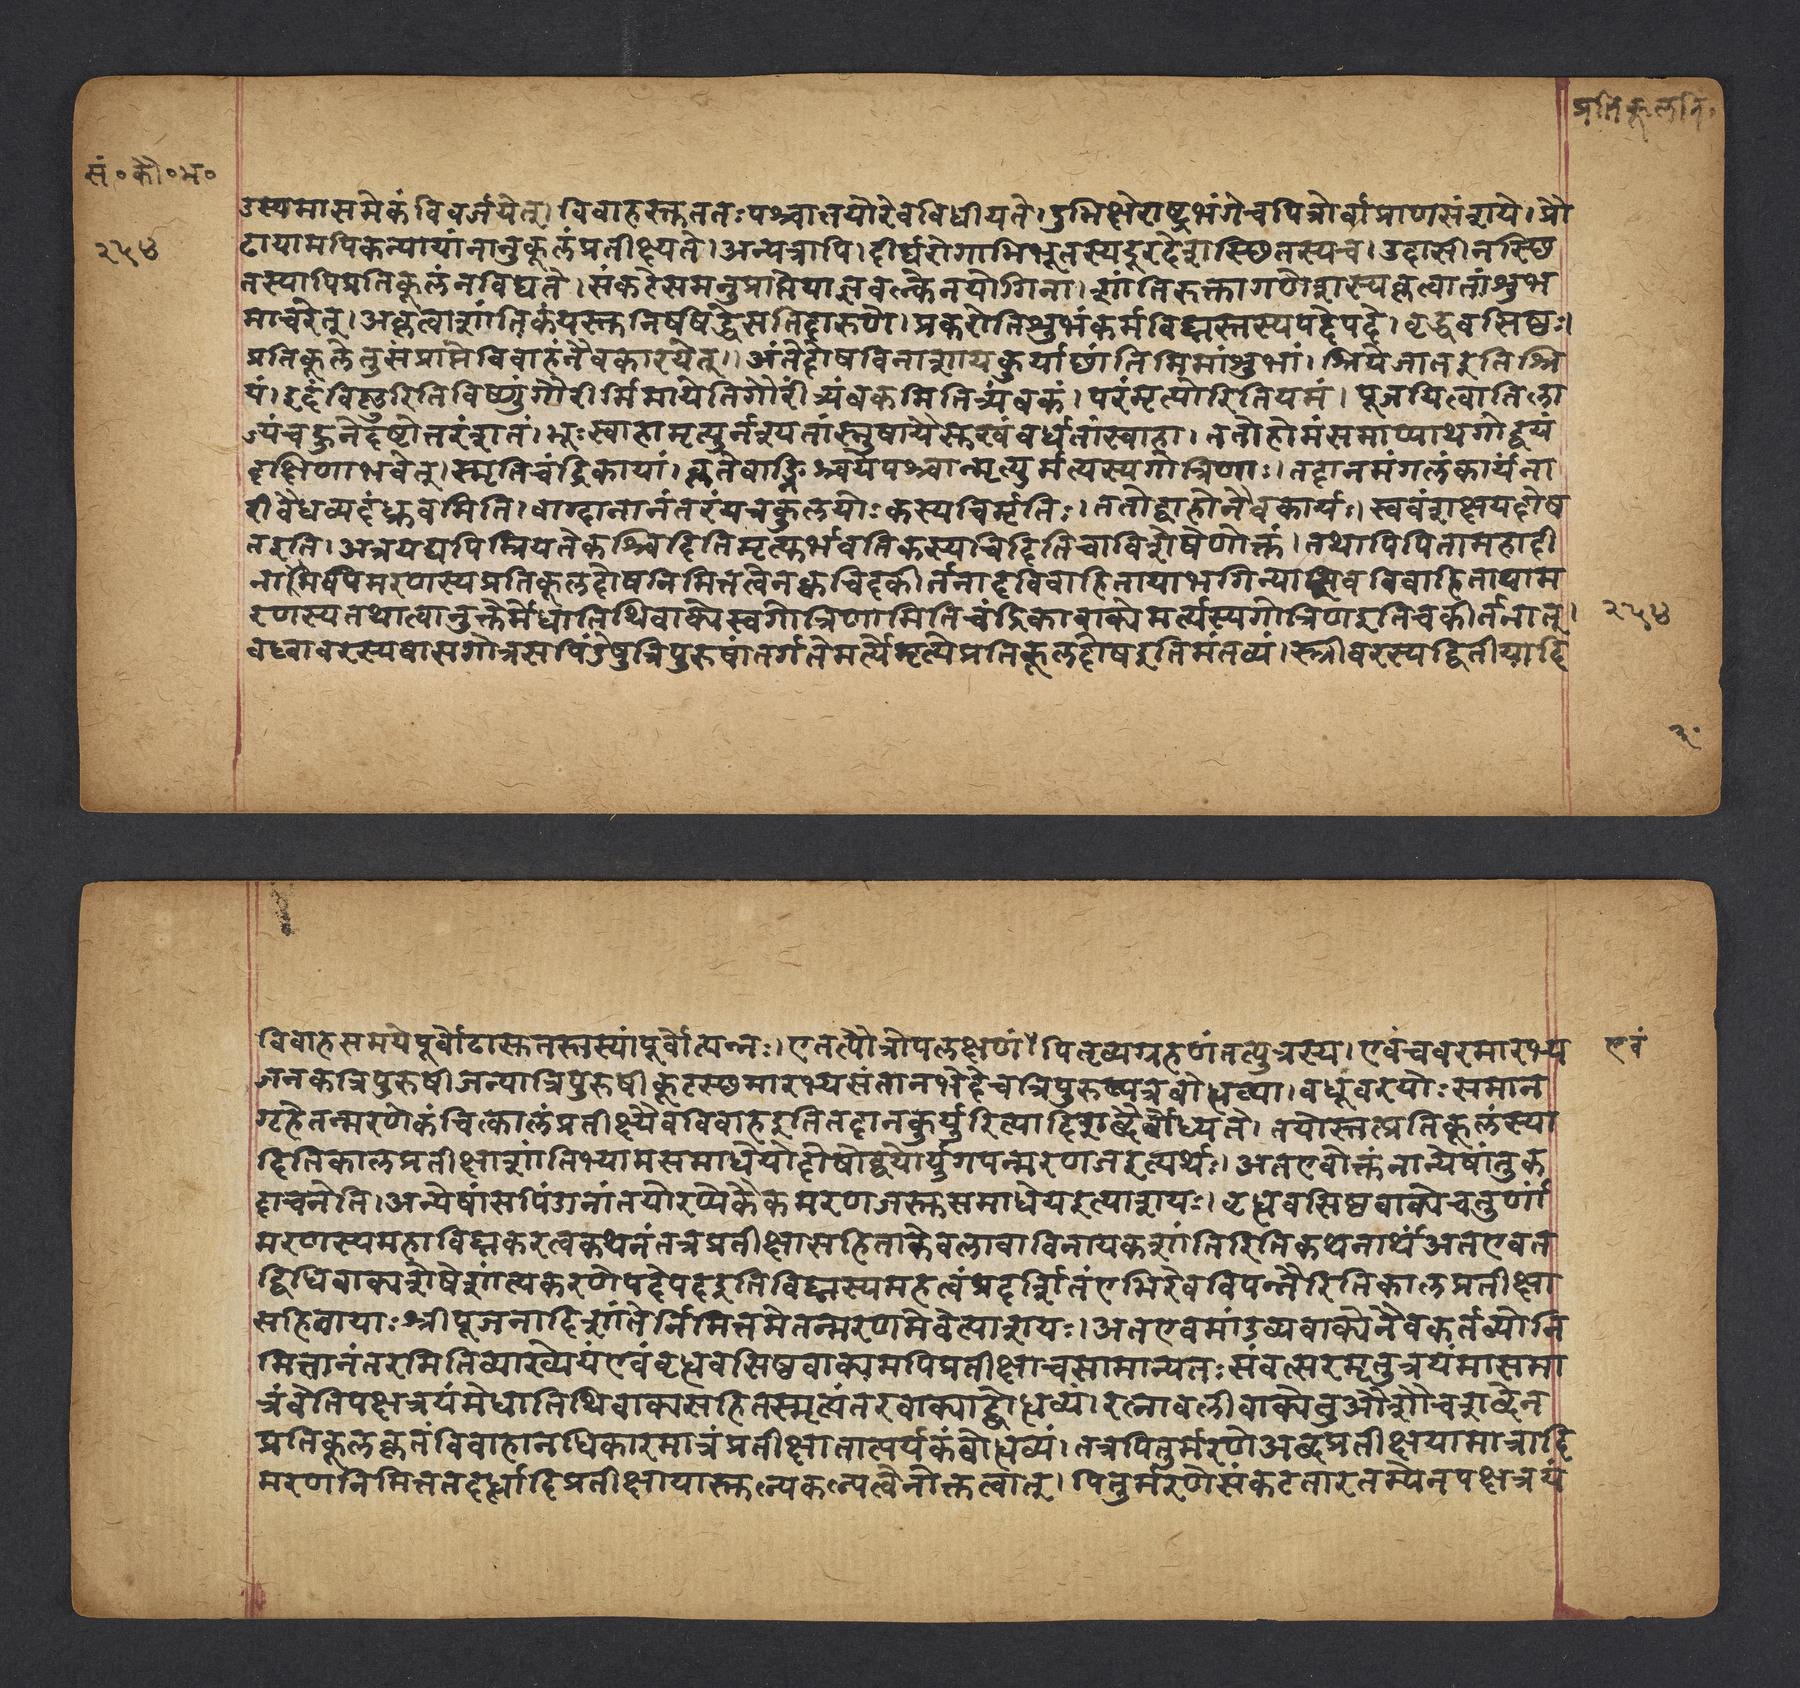 प्रतिकूलनि॰
सं॰कौ॰म॰
२५४
उस्यमासमेकंविवर्जयेत्। विवाहस्तुततःपश्चात्तयोरेवविधीयते।दुर्भिक्षेराष्ट्रभंगेचपित्रोर्वाप्राणसंशये। प्रौ
ढायामपिकन्यायांनानुकूलंप्रतीक्ष्यते।अन्यत्रापि।दीर्घरोगाभिभूतस्यदूरदेशस्थितस्यच।उदासीनस्थि
तस्यापिप्रतिकूलंनविद्यते।संकटेसमनुप्राप्तेयाज्ञवल्क्येनयोगिना।शांतिरुक्तागणेशस्यकृत्वातांशुभ
माचरेत्।अकृत्वाशांतिकंयस्तुनिषिद्धेसतिदारुणे।प्रकरोतिशुभंकर्मविघ्नस्तस्यपदेपदे।वृद्धवसिष्ठः।
प्रतिकूलेतुसंप्राप्तेविवाहंनैवकारयेत्।अंतेदोषविनाशायकुर्याछांतिमिमांशुभां।श्रियेजातइतिश्रि
यं।इदंविष्णुरितिविष्णुंगौरीर्मिमायेतिगौरीं त्र्यंबकमितित्र्यंबकं।परंमृत्योरितियमं। पूजयित्वातिला
ज्यंचहुनेदष्टोत्तरंशतं।भूःस्वाहामृत्युर्नश्यतांस्नुषायैसुखंवर्धतांस्वाहा।ततोहोमंसमाप्याथगोद्वयं
दक्षिणाभवेत्।स्मृतिचंद्रिकायां।कृतेवाङ्निश्चयेपश्चान्मृत्युर्मर्त्यस्यगोत्रिणः।तदानमंगलंकार्यंना
रीवैधव्यदंध्रुवमिति।वाग्दानानंतरंयत्रकुलयोःकस्यचिर्मृतिः।ततोद्वाहोनैवकार्यः।स्ववंशक्षयदोष
तइति।अत्रयद्यपिम्रियतेकश्चिदितिमृत्युर्भवतिकस्यचिदितिचाविशेषेणोक्तं।तथापिपितामहादी
नामेवमरणस्यप्रतिकूलदोषनिमित्तत्वेनक्वचिदकीर्तनादविवाहितायाभगिन्याइवविवाहितायाम
रणस्यतथात्वानुक्तेर्मेधातिथिवाक्येस्वगोत्रिणामितिचंद्रिकावाक्येमर्त्यस्यगोत्रिणइतिचकीर्तनात्।
२५४
वध्वावरस्यवासगोत्रसपिंडेषुत्रिपुरुषांतर्गतेमर्त्येमृत्येप्रतिकूलदोषइतिमंतव्यं।स्त्रीवरस्यद्वितीयादि
२॰
विवाहसमयेपूर्वोढासुतस्तस्यांपूर्वोत्पन्नः।एतत्पौत्रोपलक्षणं।पितृव्यग्रहणंतत्पुत्रस्य।एवंचवरमारभ्य
एवं
जनकत्रिपुरुषीजन्यात्रिपुरुषीकूटस्थमारभ्यसंतानभेदेचत्रिपुरुष्यत्रबोद्धव्या।वधूवरयोःसमान
गृहेतन्मरणेकंचित्कालंप्रतीक्ष्यैवविवाहइतितदानकुर्युरित्यादिशब्दैर्बोध्यते।तयोस्तत्प्रतिकूलंस्या
दितिकालप्रतीक्षाशांतिभ्यामसमाधेयोदोषोद्वयोर्युगपन्मरणजइत्यर्थः।अतएवोक्तंनान्येषांतुक
दाचनेति।अन्येषांसपिंडानांतयोरप्येकैकमरणजस्तुसमाधेयइत्याशयः।वृद्धवसिष्ठवाक्येचतुर्णां
मरणस्यमहाविघ्नकरत्वकथनंतत्रप्रतीक्षासहिताकेवलावाविनायकशांतिरितिकथनार्थंअतएवत
द्विधिवाक्यशेषेशांत्यकरणेपदेपदइतिविघ्नस्यमहत्वंप्रदर्शितंएभिरेवविपन्नैरितिकालप्रतीक्षा
सहितायाःश्रीपूजनादिशांतेर्निमित्तमेतन्मरणमेवेत्याशयः।अतएवमांडव्यवाक्येनैवकर्तव्योनि
मित्तानंतरमितिव्याख्येयंएवंवृद्धवसिष्ठवाक्यमपिप्रतीक्षाचसामान्यतःसंवत्सरमृतुत्रयंमासमा
त्रंवेतिपक्षत्रयंमेधातिथिवाक्यसहितस्मृत्यंतरवाक्याद्बोद्धव्यं।रत्नावलीवाक्येतुआशौचशब्देन
प्रतिकूलकृतंविवाहानधिकारमात्रंप्रतीक्षातात्पर्यकंबोद्धव्यं।तत्रपितुर्मरणेअब्दप्रतीक्षयामात्रादि
मरणनिमित्ततदर्धादिप्रतीक्षायास्तुल्यकल्पत्वेनोक्तत्वात्।पितुर्मरणेसंकटतारतम्येनपक्षत्रयं